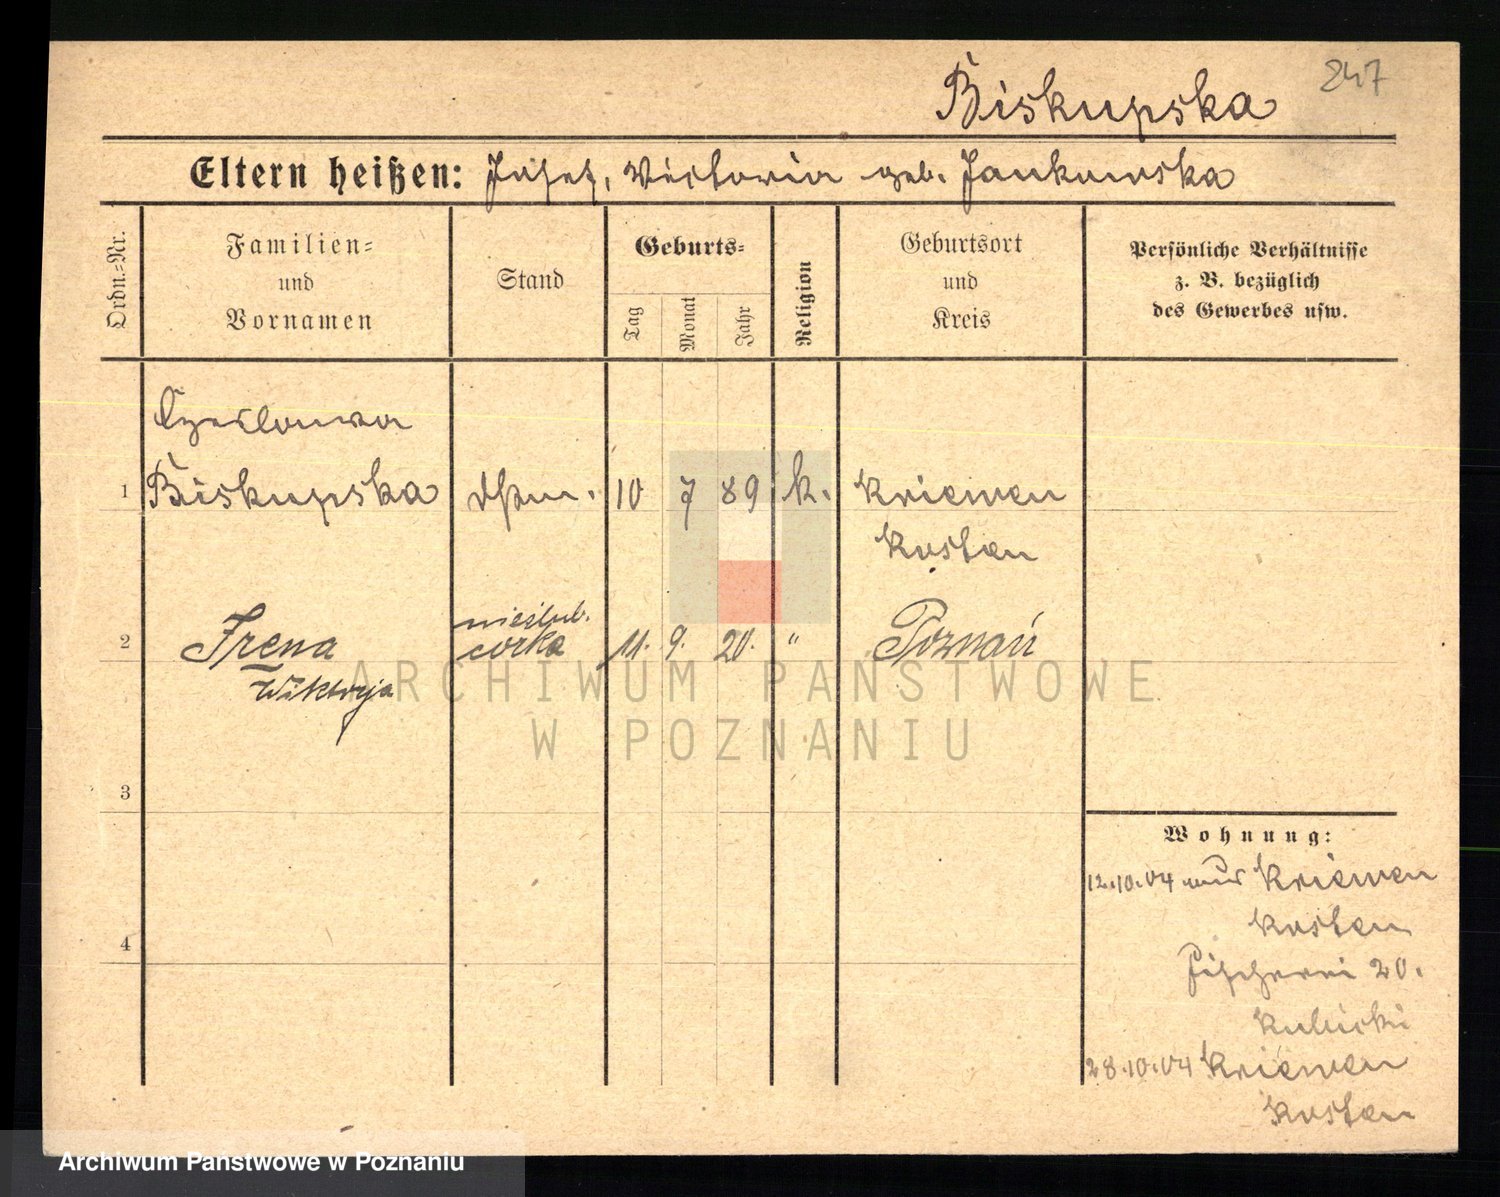 247
Biskupska
Eltern heißen: Josef, Victoria geb. Jankowska
Ordn.-Nr.
Familien- und Vornamen
Stand
Geburts-
Tag
Monat
Jahr
Religion
Geburtsort und Kreis
Persönliche Verhältnisse z. B. bezüglich des Gewerbes usw.
Czeslawa
1 Biskupska 10 7 89 k. Kriewen
Kosten
2 Irena nieślub. córka 11. 9. 20. " Poznań
Wiktorja
ARCHIWUM PAŃSTWOWE
W POZNANIU
3
Wohnung:
12.10.04 aus Kriewen
Kosten
4
Fischerei 20.
Kubicki
28.10.04 Kriewen
Kosten
Archiwum Państwowe w Poznaniu